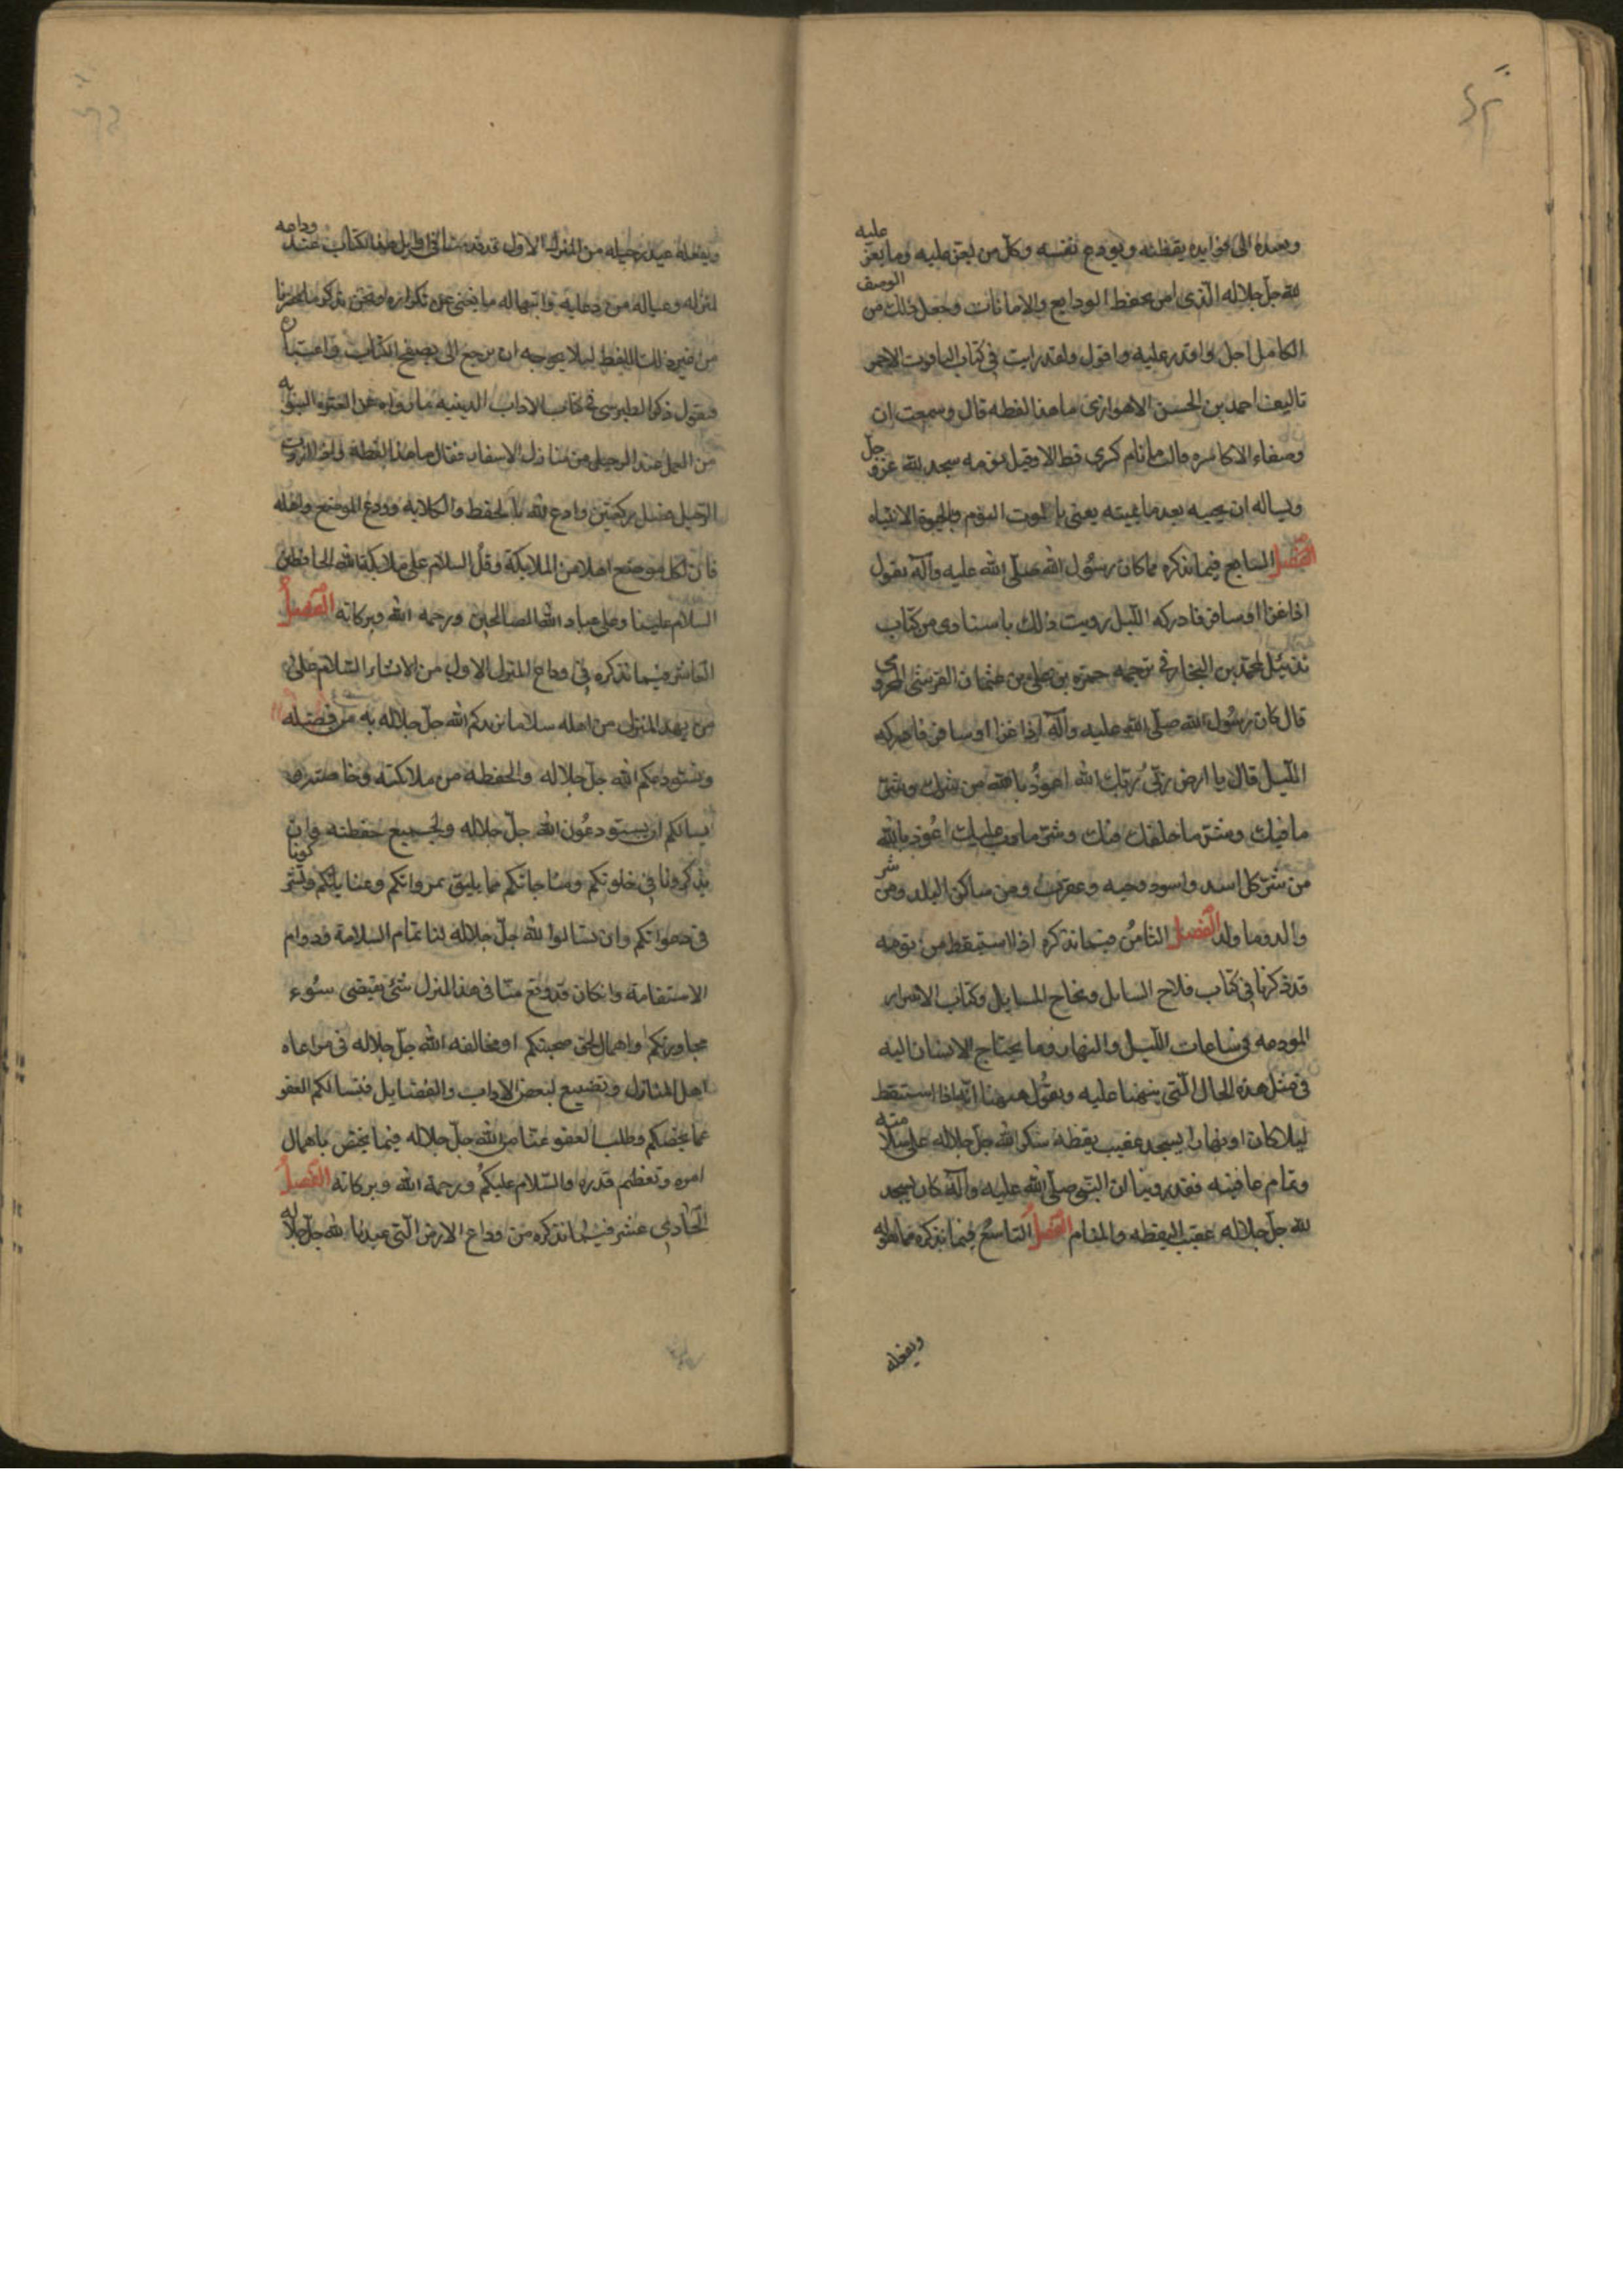 ويعيده الى فوايده يقظته ويودع نفسه وكل من يعز عليه وما يعز عليه
لله جل جلاله الذى امن بحفظ الودايع والامانات وجعل ذلك من الوصف
الكامل اجل واقدر عليه واقول ولقد رايت فى كتاب الياقوت الاحمر
تاليف احمد بن الحسن الاهوازى ما هذا لفظه قال وسمعت ان
وصفاء الاكاسره قالت ما نام كسرى قط الا وقبل نومه سجد لله عز وجل
ويساله ان يحييه بعد ما يميته يعنى بالموت النوم وبالحيوة الانتباه
الفصل السابع فيما نذكره مما كان رسول الله صلى الله عليه وآله يقول
اذا غزا او سافر فادركه الليل رويت ذلك باسنادى من كتاب
تذييل لمحمد بن النجار فى ترجمه حمزه بن على بن عثمان القرشى المخزومى
قال كان رسول الله صلى الله عليه وآله اذا غزا او سافر فادركه
الليل قال يا ارض ربى وربك الله اعوذ بالله من شرك وشر
ما فيك ومن شر ما خلق فيك وشر ما دب عليك اعوذ بالله
من شر كل اسد واسود وحيه وعقرب ومن ساكن البلد ومن شر
والد وما ولد الفصل الثامن فيما نذكره اذا استيقظ من نومه
قد ذكرنا فى كتاب فلاح السايل ونجاح المسايل وكتاب الاسرار
المودعه فى ساعات الليل والنهار وما يحتاج الانسان اليه
فى مثل هذه الحال التى ينبهنا عليه ونقول ههنا انه اذا استيقظ
ليلا كان او نهارا يسجد عقيب يقظته شكر الله جل جلاله على سلامته
وتمام عافيته فقد روينا ان النبى صلى الله عليه وآله كان يسجد
لله جل جلاله عقيب اليقظه والمنام الفصل التاسع فيما نذكره مما يقوله
ويفعله
ويفعله عند رحيله من المنزل الاول قد قدمنا فى اوايل هذا الكتاب عند وداعه
لمنزله وعياله من دعايه وابتهاله ما يغنى عن تكراره ونحن نذكر ما يحضرنا
من غير ذلك اللفظ ليلا يحوجه ان يرجع الى تصفح الكتاب واعتباره
فنقول ذكر الطبرسى فى كتاب الاداب الدينيه ما رواه عن العتره النبويه
من العمل عند الرحيل من منازل الاسفار فقال ما هذا لفظه واذا اردت
الرحيل فصل ركعتين وادع الله بالحفظ والكلايه وودع الموضع واهله
فان لكل موضع اهلا من الملايكة وقل السلام على ملايكة الله الحافظين
السلام علينا وعلى عباد الله الصالحين ورحمه الله وبركاته الفصل
العاشر فيما نذكره فى وداع المنزل الاول من الانشاء السلام على
من بهذا المنزل من اهله سلاما نزيدكم الله جل جلاله به من فضله
ونستودعكم الله جل جلاله والحفظه من ملائكته وخاصته
نسالكم ان تستودعون الله جل جلاله ولجميع حفظته وان
تذكرونا فى خلوتكم ومناجاتكم بما يليق بمرواتكم وعنايتكم وتشركونا
فى دعواتكم وان تسالوا الله جل جلاله لنا تمام السلامة ودوام
الاستقامة وان كان قد وقع منا فى هذا المنزل شئ يقتضى سوء
مجاورتكم واهمال لحق صحبتكم او مخالفه الله جل جلاله فى مراعاه
اهل المنازل وتضييع لبعض الاداب والفضايل فنسالكم العفو
عما يخصكم وطلب العفو عنا من الله جل جلاله فيما يختص باهمال
امره وتعظيم قدره والسلام عليكم ورحمة الله وبركاته الفصل
الحادى عشر فيما نذكره من وداع الارض التى عبدنا الله جل جلاله